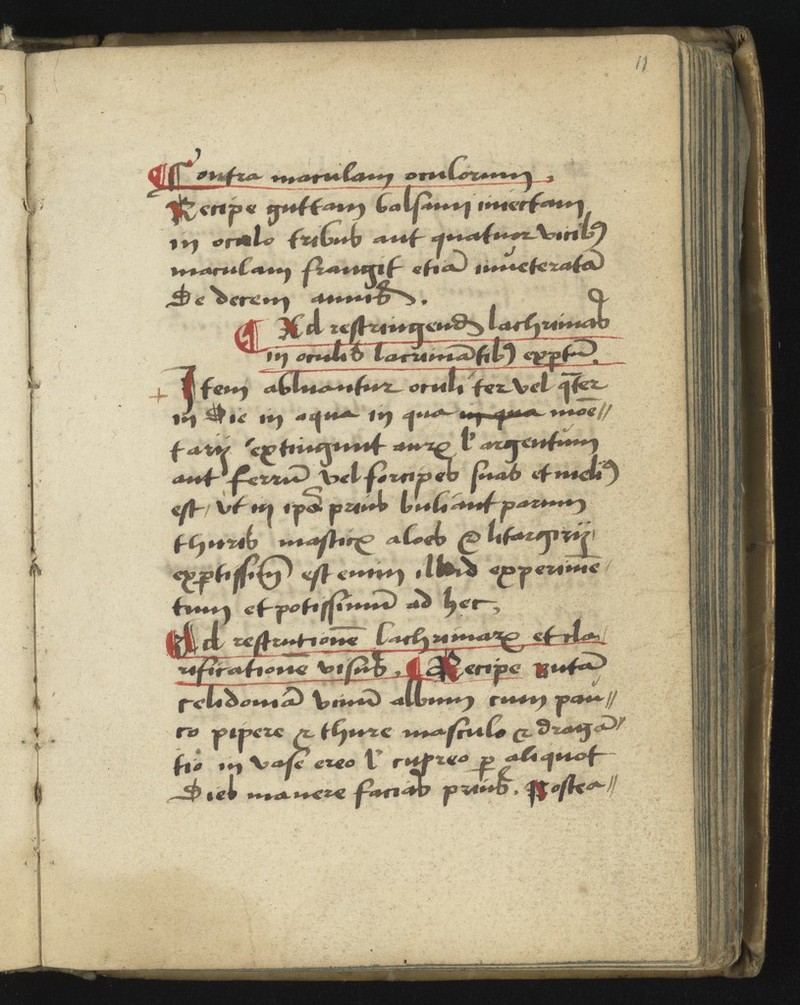 11
¶ Contra maculam oculorum,
Recipe guttam balsami iniectam
in oculo tribus aut quatuor vicibꝰ
maculam frangit etiā inveteratā
De decem annis.
¶ Ad restringend lachrimas
in oculis lacrimātibꝰ expertū.
Item abluantur oculi ter vel qater
in Die in aqua in qua in qua moē//
tarij extingunt aurꝫ l' argentum
aut ferrū vel forcipes suas et meliꝰ
est, vt in ipsa prius buliant parum
thuris masticꝫ aloes & litargirij
expertissimū est enim illud experimē
tum et potissimū ad hec,
Ad restrictionē lachrimarꝫ et cla,
rificationē visus. ¶ Recipe rutā
celidoniā vinū album cum pau//
co pipere & thure masculo & dragā//
tio in vase ereo l' cupreo p aliquot
Dies manere facias prius. Postea//